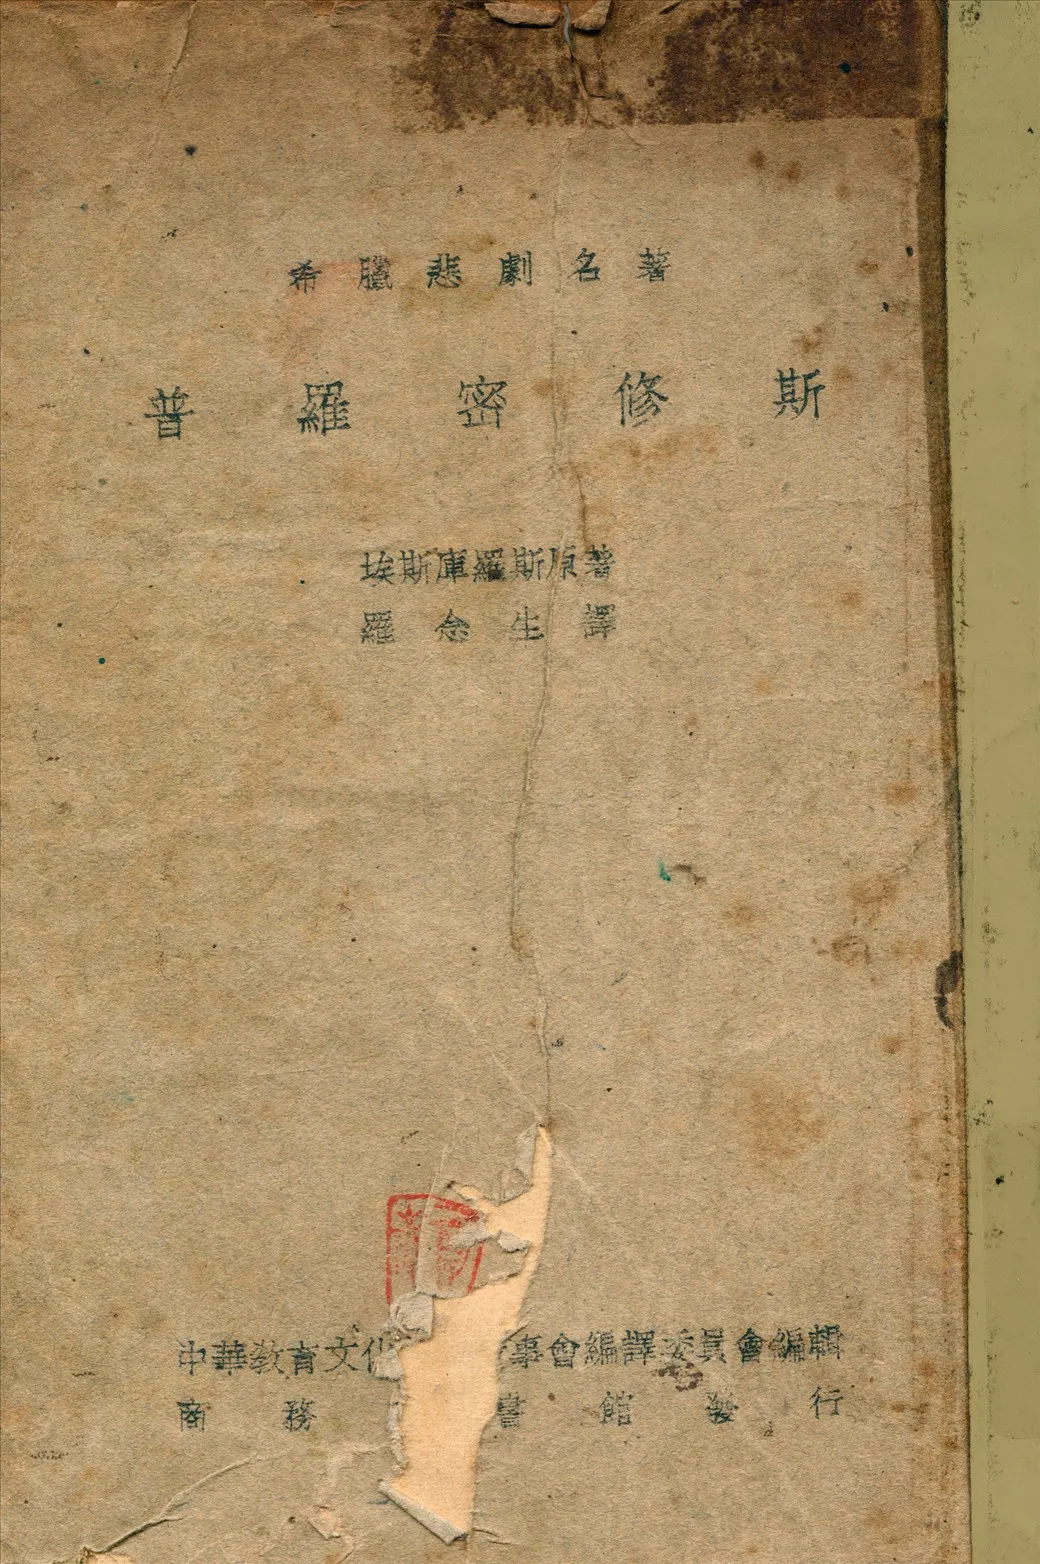 希臘悲劇名著
普羅密修斯
埃斯庫羅斯原著
羅念生譯
中華教育文化事會編譯委員會編輯
商務書館發行